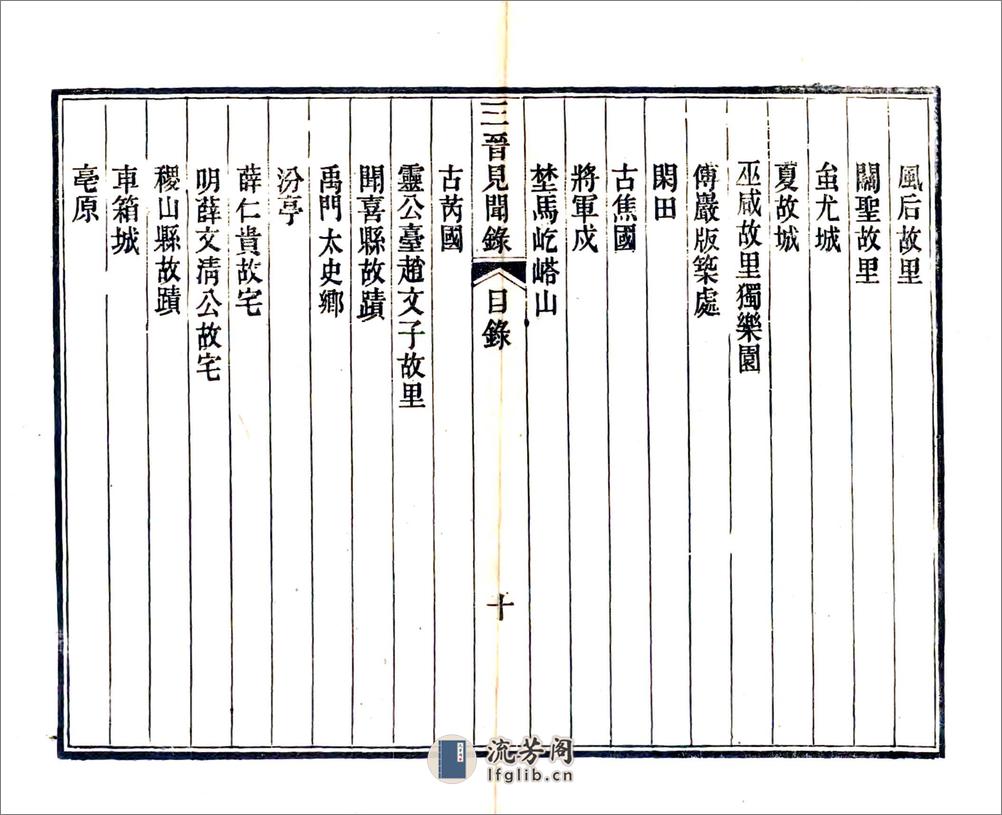 風后故里
關聖故里
蚩尤城
夏故城
巫咸故里獨樂園
傅巖版築處
閑田
古焦國
將軍戍
埜馬屹山
三晉見聞錄 目錄 十
古芮國
靈公臺趙文子故里
聞喜縣故蹟
禹門太史鄉
汾亭
薛仁貴故宅
明薛文清公故宅
稷山縣故蹟
車箱城
亳原
流芳阁
lfglib.cn